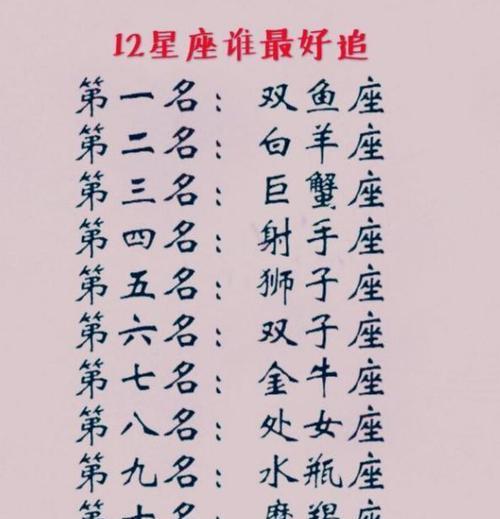 12星座谁最好追
第一名：双鱼座
第二名：白羊座
第三名：巨蟹座
第四名：射手座
第五名：狮子座
第六名：双子座
第七名：金牛座
第八名：处女座
第九名：水瓶座